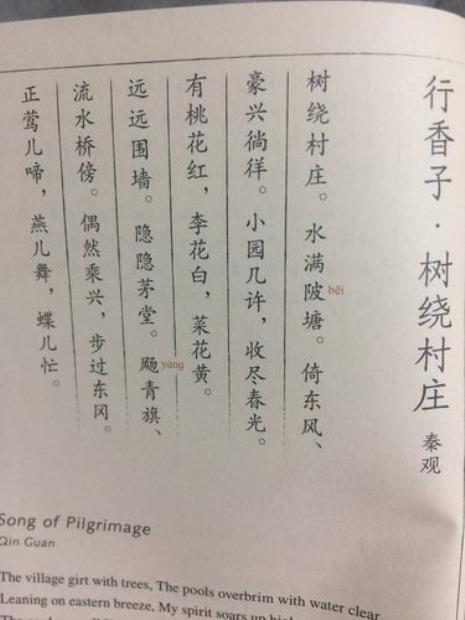 行香子·树绕村庄
秦观
树绕村庄。水满陂塘。倚东风、
bēi
豪兴徜徉。小园几许，收尽春光。
有桃花红，李花白，菜花黄。
远远围墙。隐隐茅堂。飏青旗、
yáng
流水桥傍。偶然乘兴，步过东冈。
正莺儿啼，燕儿舞，蝶儿忙。
Song of Pilgrimage
Qin Guan
The village girt with trees, The pools overbrim with water clear
Leaning on eastern breeze, My spirit soars up